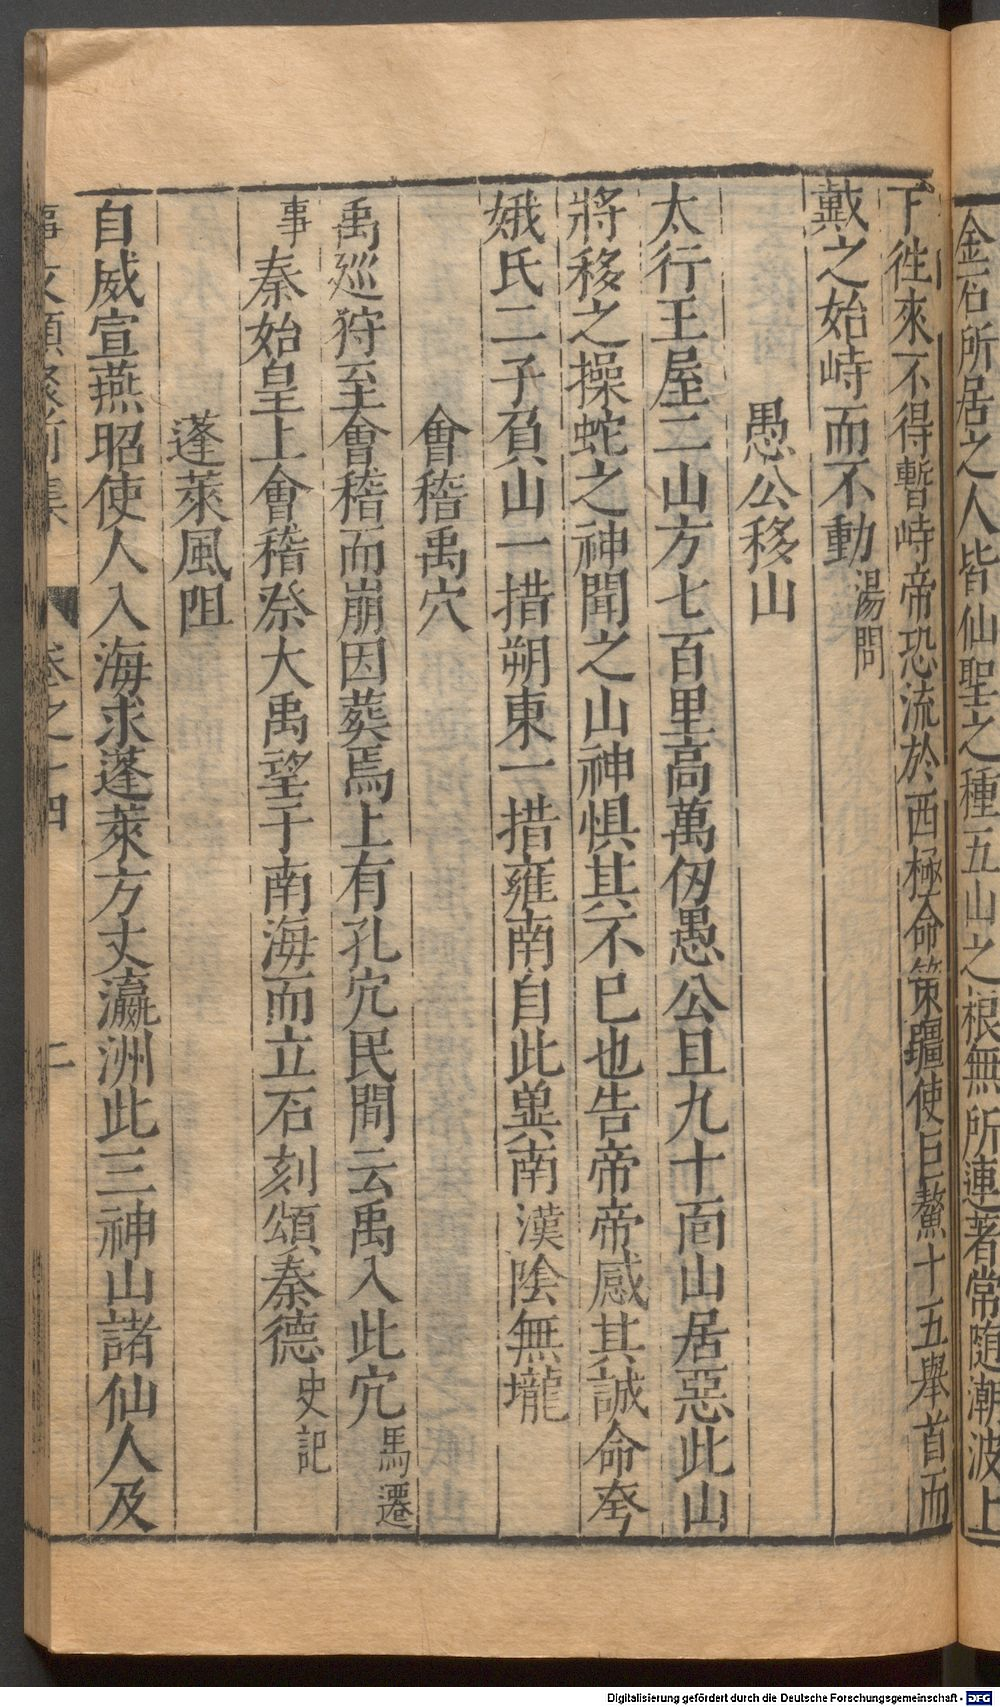 金石所居之人皆仙聖之種五山之根無所連著常隨潮波上
下徃來不得暫峙帝恐流於西極命策疆使巨鰲十五舉首而
戴之始峙而不動湯問
愚公移山
太行王屋二山方七百里高萬仭愚公且九十面山居惡此山
將移之操蛇之神聞之山神惧其不已也告帝帝感其誠命夸
娥氏二子負山一措朔東一措雍南自此兾南漢隂無壠
會稽禹穴
禹巡狩至會稽而崩因葬焉上有孔穴民間云禹入此穴馬遷
事秦始皇上會稽祭大禹望于南海而立石刻頌秦德史記
蓬萊風阻
自威宣燕昭使人入海求蓬萊方丈瀛洲此三神山諸仙人及
事文類聚前集 卷之十四 二
Digitalisierung gefördert durch die Deutsche Forschungsgemeinschaft - DFG